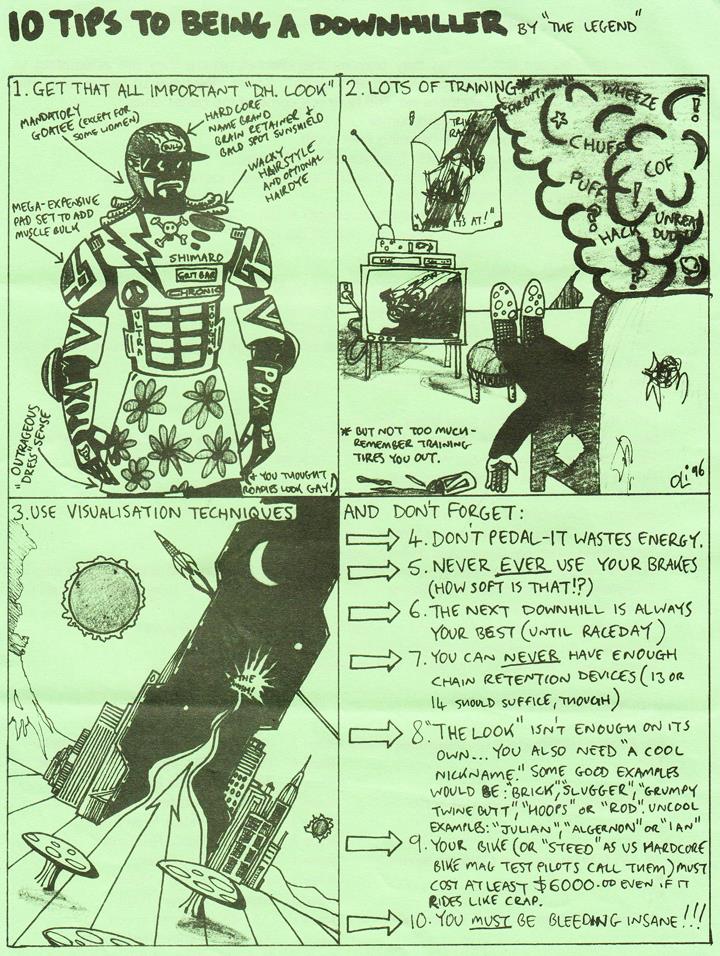 10 TIPS TO BEING A DOWNHILLER BY "THE LEGEND"
1. GET THAT ALL IMPORTANT "D.H. LOOK"
MANDATORY
GOATEE (EXCEPT FOR
SOME WOMEN)
HARDCORE
NAME BRAND
BRAIN RETAINER &
BALD SPOT SUNSHIELD
WACKY
HAIRSTYLE
AND OPTIONAL
HAIRDYE
MEGA-EXPENSIVE
PAD SET TO ADD
MUSCLE BULK
SHIMARO
GRIT BAR
CHRONIC
ULTRA
POX
"OUTRAGEOUS
DRESS" SENSE
& YOU THOUGHT
ROADIES LOOK GAY!
2. LOTS OF TRAINING*
WHEEZE
CHUFF
COF
PUFF
UNREAL
DUDE
HACK
IT'S AT!"
* BUT NOT TOO MUCH-
REMEMBER TRAINING
TIRES YOU OUT.
Oli 96
3. USE VISUALISATION TECHNIQUES
THE
AND DON'T FORGET:
4. DON'T PEDAL-IT WASTES ENERGY.
5. NEVER EVER USE YOUR BRAKES
(HOW SOFT IS THAT!?)
6. THE NEXT DOWNHILL IS ALWAYS
YOUR BEST (UNTIL RACEDAY)
7. YOU CAN NEVER HAVE ENOUGH
CHAIN RETENTION DEVICES (13 OR
14 SHOULD SUFFICE, THOUGH)
8. "THE LOOK" ISN'T ENOUGH ON ITS
OWN... YOU ALSO NEED "A COOL
NICKNAME." SOME GOOD EXAMPLES
WOULD BE: "BRICK", "SLUGGER", "GRUMPY
TWINE BUTT", "HOOPS" OR "ROD". UNCOOL
EXAMPLES: "JULIAN", "ALGERNON" OR "IAN"
9. YOUR BIKE (OR "STEED" AS US HARDCORE
BIKE MAG TEST PILOTS CALL THEM) MUST
COST AT LEAST $6000.00 EVEN IF IT
RIDES LIKE CRAP.
10. YOU MUST BE BLEEDING INSANE!!!